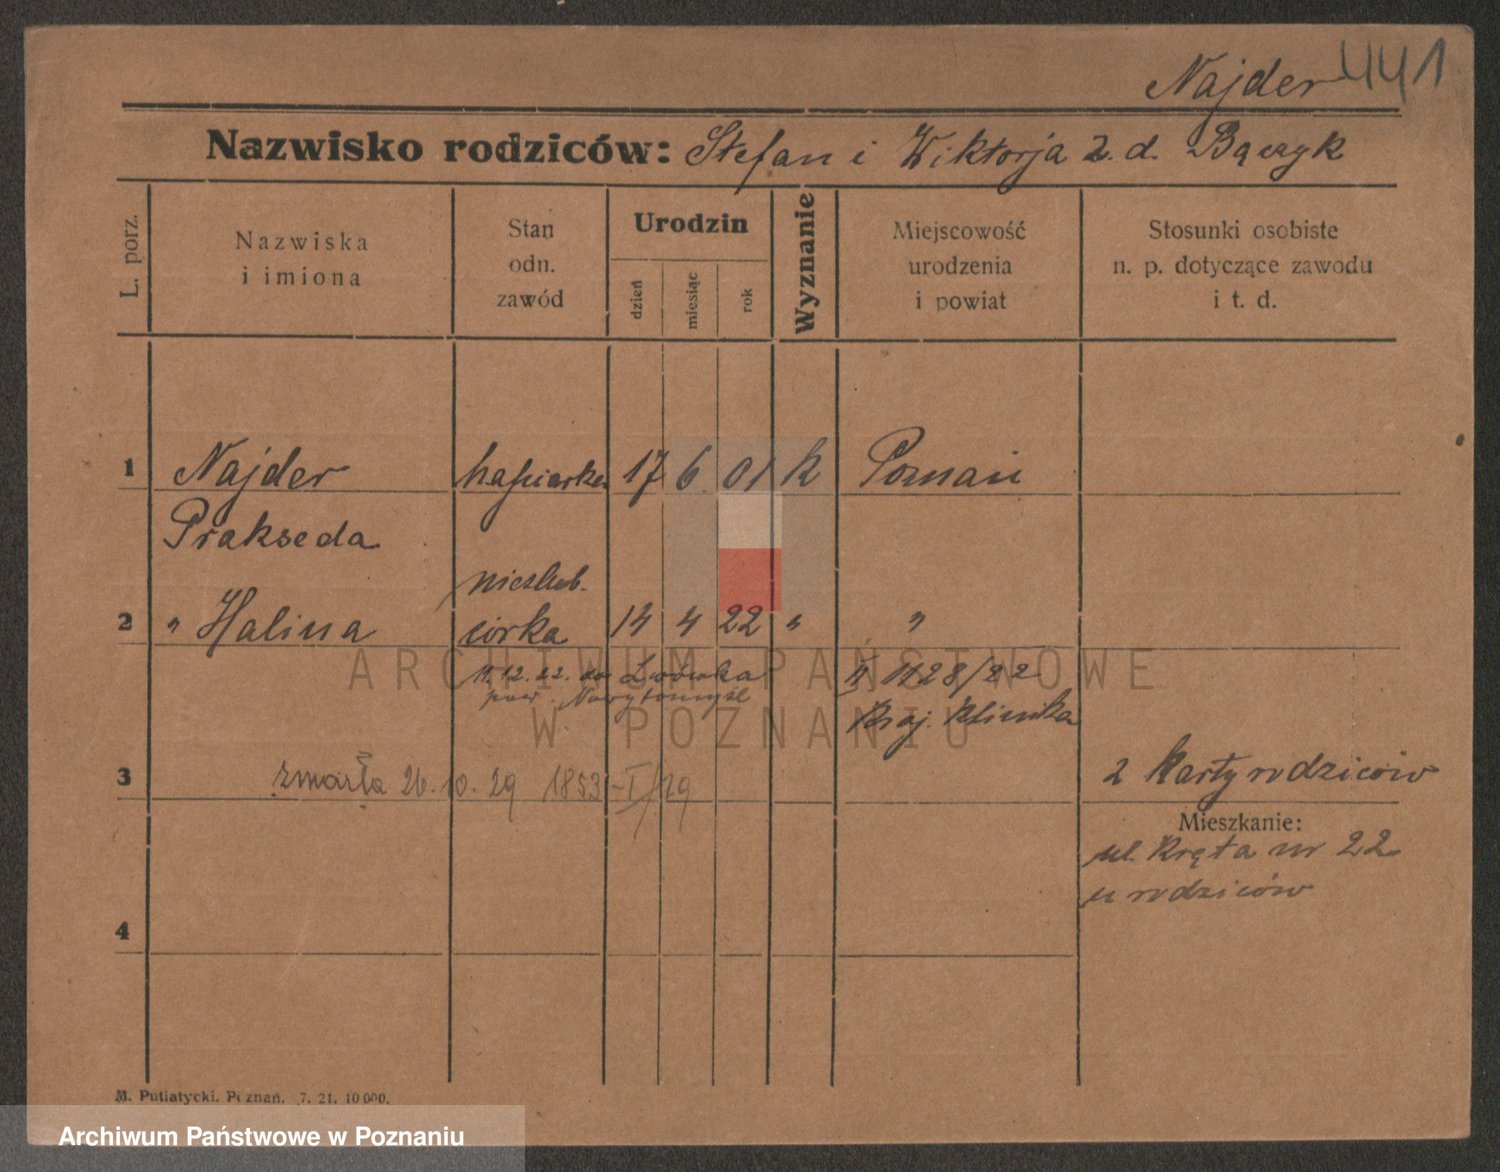 Najder 441
Nazwisko rodziców: Stefan i Wiktorja z. d. Bączyk
L. porz.
Nazwiska
i imiona
Stan
odn.
zawód
Urodzin
dzień
miesiąc
rok
Wyznanie
Miejscowość
urodzenia
i powiat
Stosunki osobiste
n. p. dotyczące zawodu
i t. d.
1 Najder hafciarka 17 6 01 k Poznań
Prakseda
nieślub.
2 " Halina córka 14 4 22 " "
11.12.22. do Lwówka II 1128/22
pow. Nowytomyśl
Kraj. Klinika
3 zmarła 26.10.29 1853-I/29
2 karty rodziców
Mieszkanie:
ul. Kręta nr 22
u rodziców
4
M. Putiatycki. Poznań. 7. 21. 10 000.
ARCHIWUM PAŃSTWOWE
W POZNANIU
Archiwum Państwowe w Poznaniu